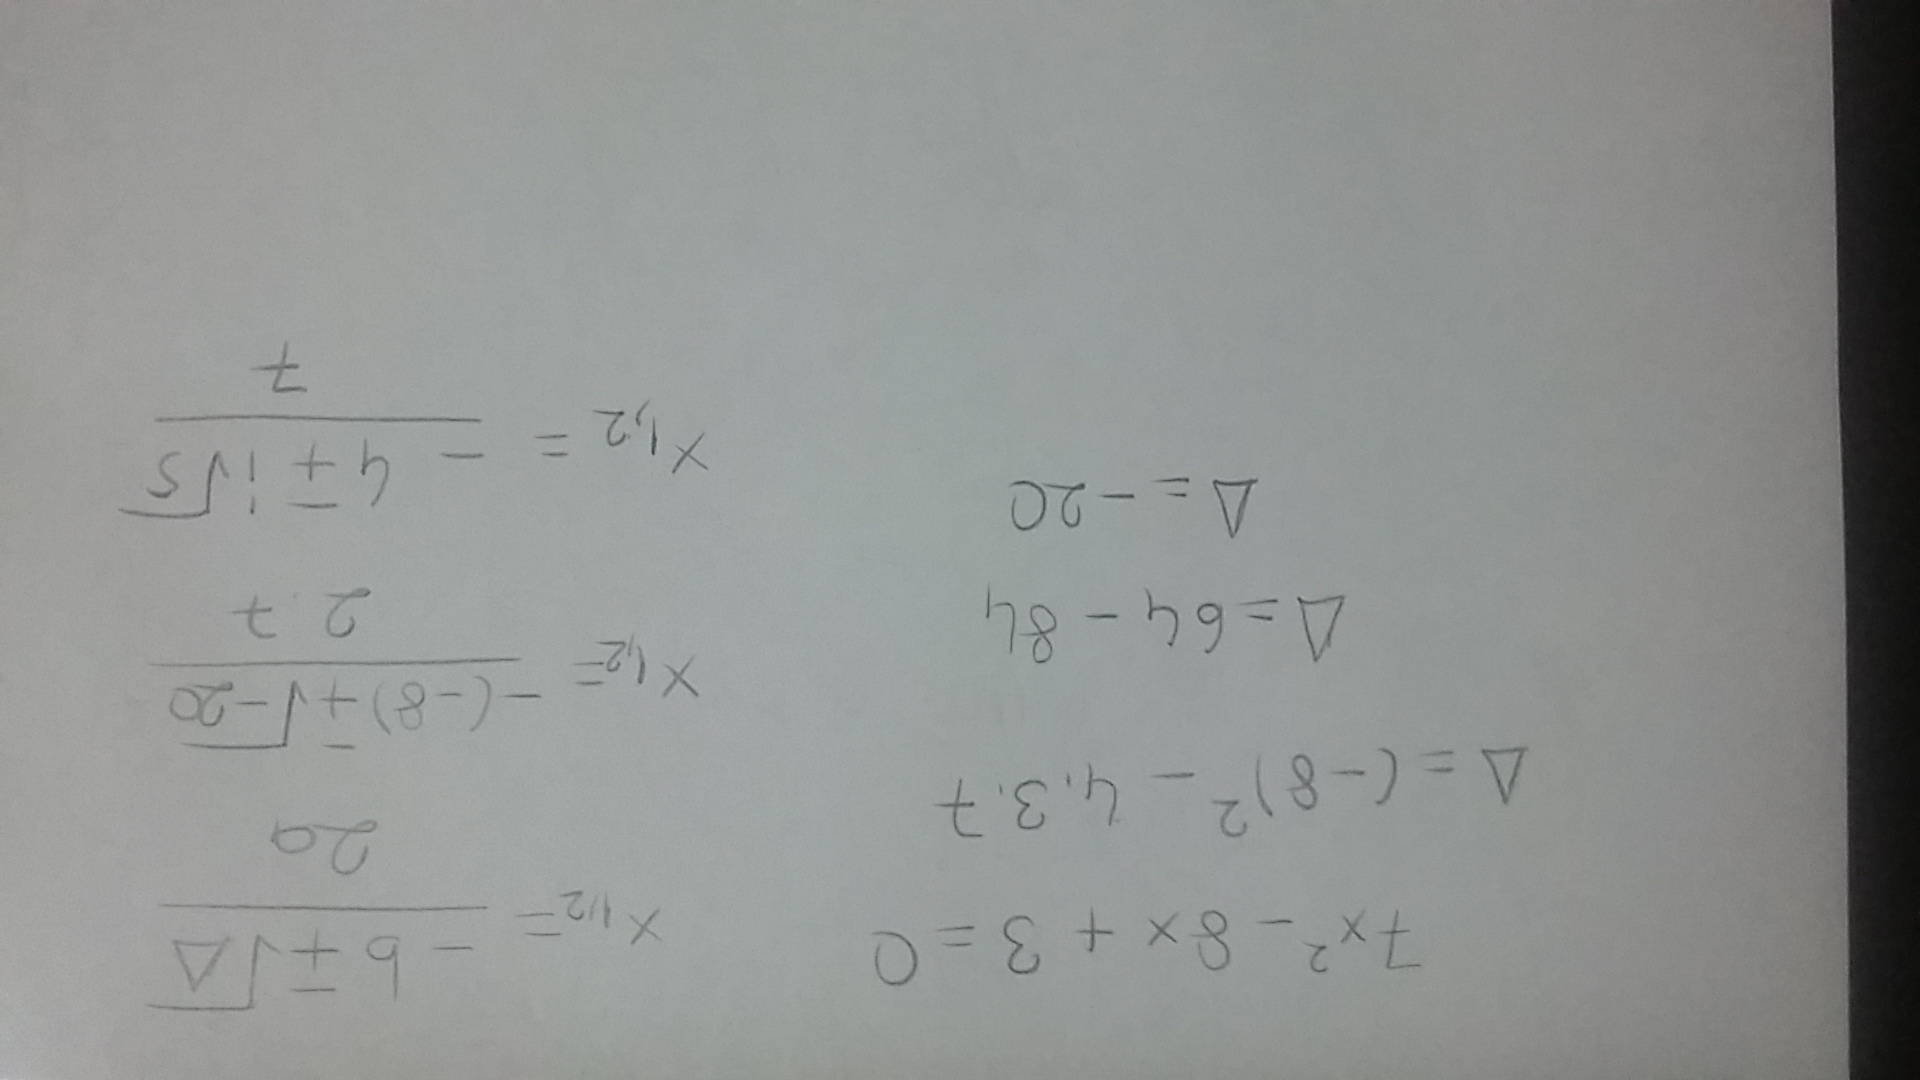 7x² - 8x + 3 = 0
Δ = (-8)² - 4.3.7
Δ = 64 - 84
Δ = -20
x₁,₂ = (-b ∓ √Δ) / 2a
x₁,₂ = (-(-8) ∓ √-20) / 2.7
x₁,₂ = (-4 ∓ i√5) / 7